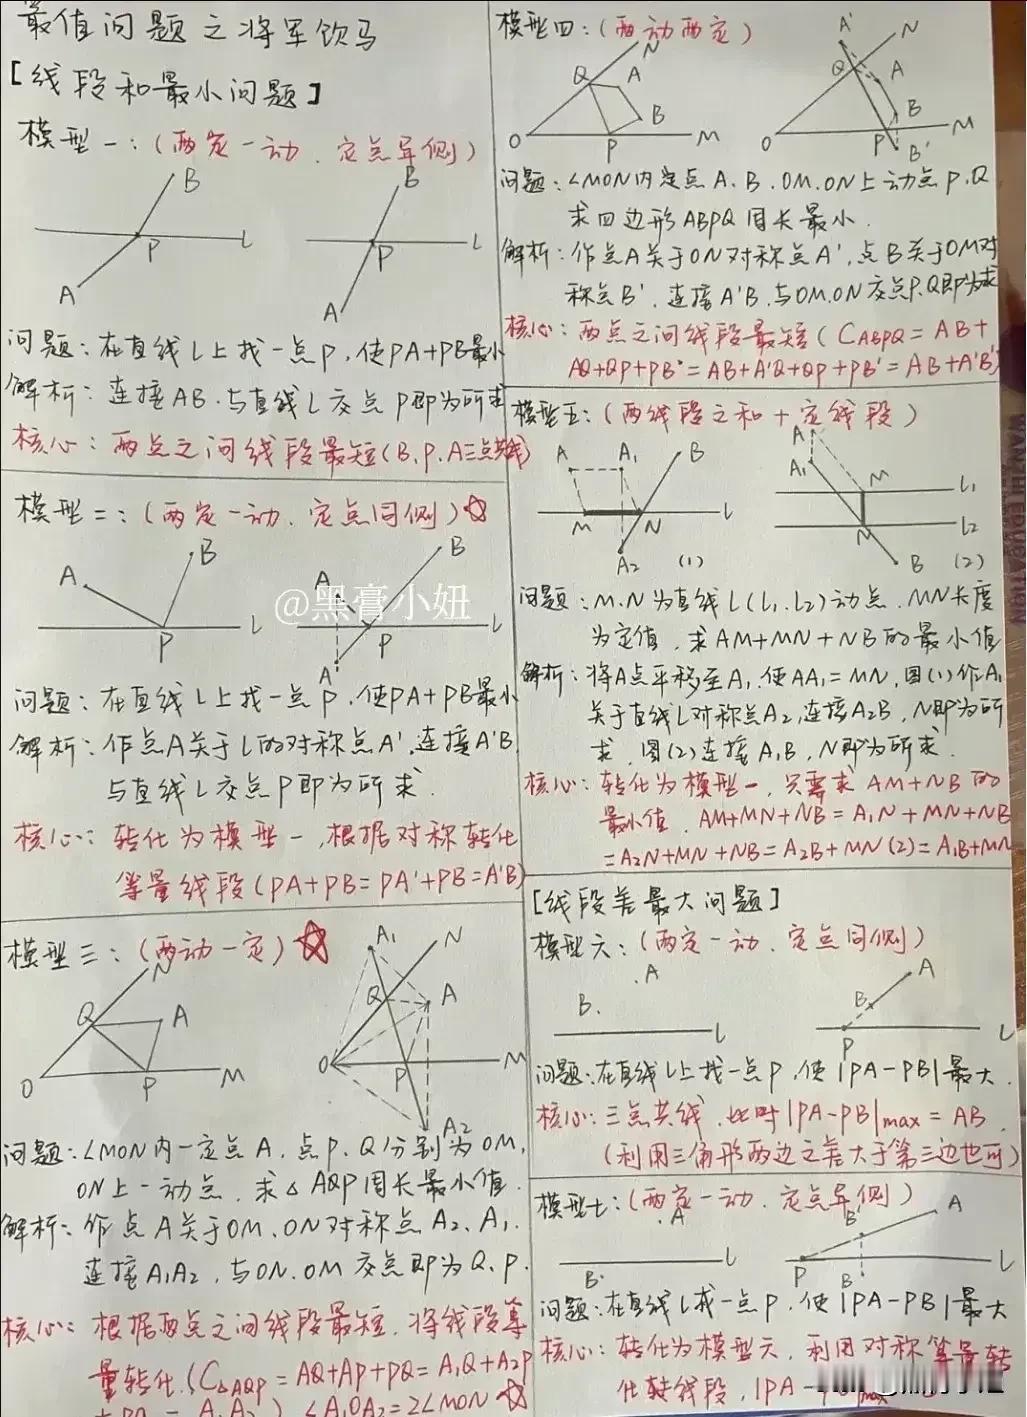 最值问题之将军饮马
[线段和最小问题]
模型一:(两定一动、定点异侧)
B
P
L
A
B
P
L
A
问题:在直线L上找一点P,使PA+PB最小
解析:连接AB与直线L交点P即为所求
核心:两点之间线段最短(B、P、A三点共线)
模型二:(两定一动、定点同侧)☆
A
B
P
L
A
B
P
L
A'
@黑膏小妞
问题:在直线L上找一点P,使PA+PB最小
解析:作点A关于L的对称点A',连接A'B
与直线L交点P即为所求.
核心:转化为模型一,根据对称转化
等量线段(PA+PB=PA'+PB=A'B)
模型三:(两动一定)☆
N
Q
A
O
P
M
A1
N
Q
A
O
P
M
A2
问题:∠MON内一定点A,点P、Q分别为OM,
ON上一动点,求△AQP周长最小值.
解析:作点A关于OM、ON对称点A2、A1.
连接A1A2,与ON、OM交点即为Q、P.
核心:根据两点之间线段最短,将线段等
量转化.(C△AQP=AQ+AP+PQ=A1Q+A2P
+PQ=A1A2)∠A1OA2=2∠MON☆
模型四:(两动两定)
N
Q
A
B
O
P
M
A'
N
Q
A
B
O
P
M
B'
问题:∠MON内定点A、B、OM、ON上动点P、Q
求四边形ABPQ周长最小.
解析:作点A关于ON对称点A',点B关于OM对
称点B',连接A'B'与OM、ON交点P、Q即为求
核心:两点之间线段最短(CABPQ=AB+
AQ+QP+PB=AB+A'Q+QP+PB'=AB+A'B')
模型五:(两线段之和+定线段)
A
A1
B
M
N
L
A2
(1)
A
A1
M
L1
L2
N
B
(2)
问题:M、N为直线L(L1、L2)动点,MN长度
为定值,求AM+MN+NB的最小值
解析:将A点平移至A1,使AA1=MN,图(1)作A1
关于直线L对称点A2,连接A2B,N即为所
求,图(2)连接A1B,N即为所求.
核心:转化为模型一,只需求AM+NB的
最小值,AM+MN+NB=A1N+MN+NB
=A2N+MN+NB=A2B+MN(2)=A1B+MN
[线段差最大问题]
模型六:(两定一动、定点同侧)
A
B
L
A
B
P
L
问题:在直线L上找一点P,使|PA-PB|最大.
核心:三点共线,此时|PA-PB|max=AB.
(利用三角形两边之差大于第三边也可)
模型七:(两定一动、定点异侧)
A
B
L
A
B'
P
B
L
问题:在直线L找一点P,使|PA-PB|最大
核心:转化为模型六,利用对称等量转
化线段,|PA-
max